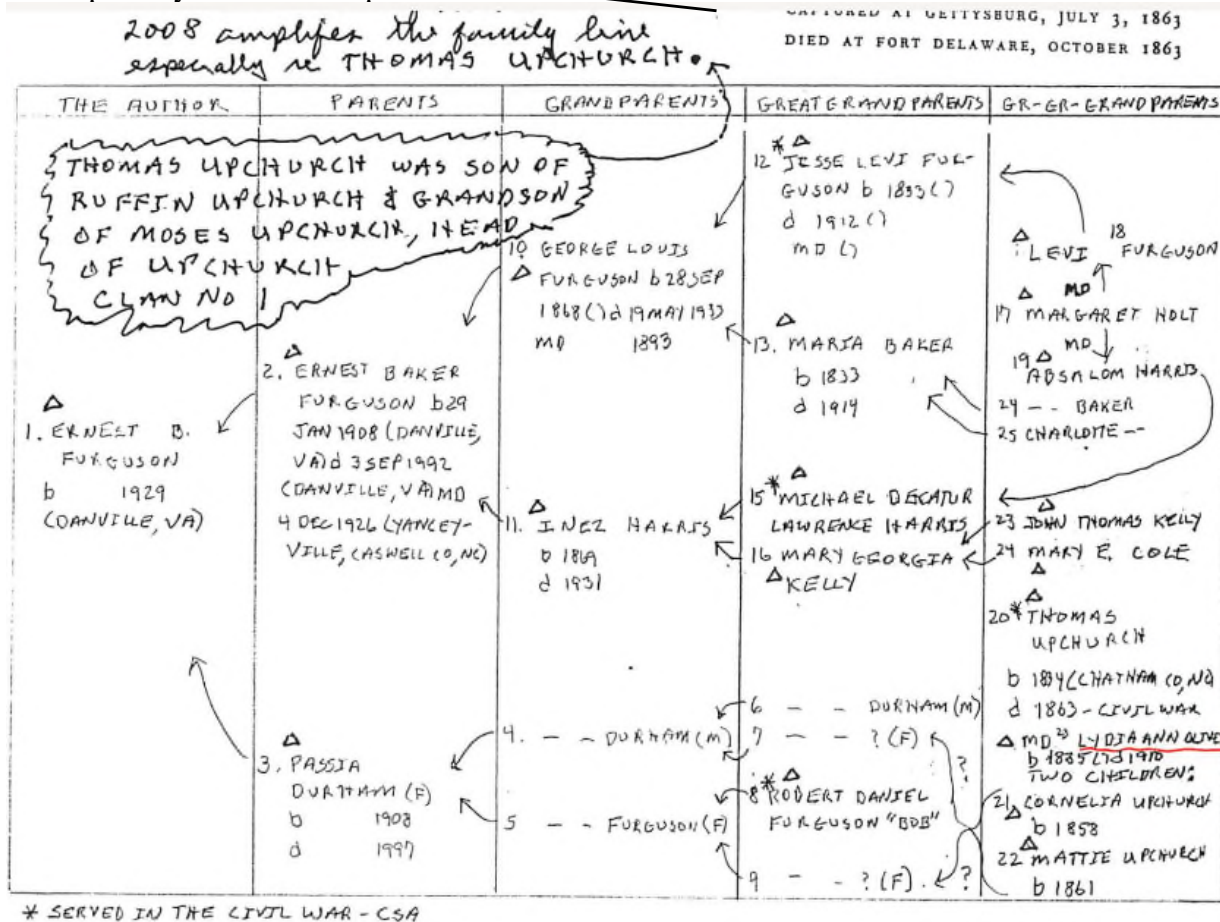 2008 amplifies the family line
especially re THOMAS UPCHURCH.
CAPTURED AT GETTYSBURG, JULY 3, 1863
DIED AT FORT DELAWARE, OCTOBER 1863
THE AUTHOR
PARENTS
GRANDPARENTS
GREAT GRANDPARENTS
GR-GR-GRANDPARENTS
THOMAS UPCHURCH WAS SON OF
RUFFIN UPCHURCH & GRANDSON
OF MOSES UPCHURCH, HEAD
OF UPCHURCH
CLAN NO 1
1. ERNEST B.
FURGUSON
b 1929
(DANVILLE, VA)
2. ERNEST BAKER
FURGUSON b29
JAN 1908 (DANVILLE,
VA)d 3 SEP 1992
(DANVILLE, VA) MD
4 DEC 1926 (YANCEY-
VILLE, CASWELL CO, NC)
3. PASSIA
DURHAM (F)
b 1908
d 1997
10 GEORGE LOUIS
FURGUSON b 28 SEP
1868 () d 19 MAY 1933
MD 1893
11. INEZ HARRIS
b 1869
d 1931
4. - - DURHAM (M)
5 - - FURGUSON (F)
12 * JESSE LEVI FUR-
GUSON b 1833 ()
d 1912 ()
MD ()
13. MARIA BAKER
b 1833
d 1914
15 * MICHAEL DECATUR
LAWRENCE HARRIS
16 MARY GEORGIA
KELLY
6 - - DURHAM (M)
7 - - ? (F)
?
8 * ROBERT DANIEL
FURGUSON "BOB"
9 - - ? (F).
?
18
LEVI FURGUSON
MD
17 MARGARET HOLT
MD
19
ABSALOM HARRIS
24 - - BAKER
25 CHARLOTTE --
23 JOHN THOMAS KELLY
24 MARY E. COLE
20 * THOMAS
UPCHURCH
b 1834 (CHATHAM CO, NC)
d 1863 - CIVIL WAR
MD 23 LYDIA ANN OLIVE
b 1835 (?) d 1910
TWO CHILDREN:
21 CORNELIA UPCHURCH
b 1858
22 MATTIE UPCHURCH
b 1861
* SERVED IN THE CIVIL WAR - CSA